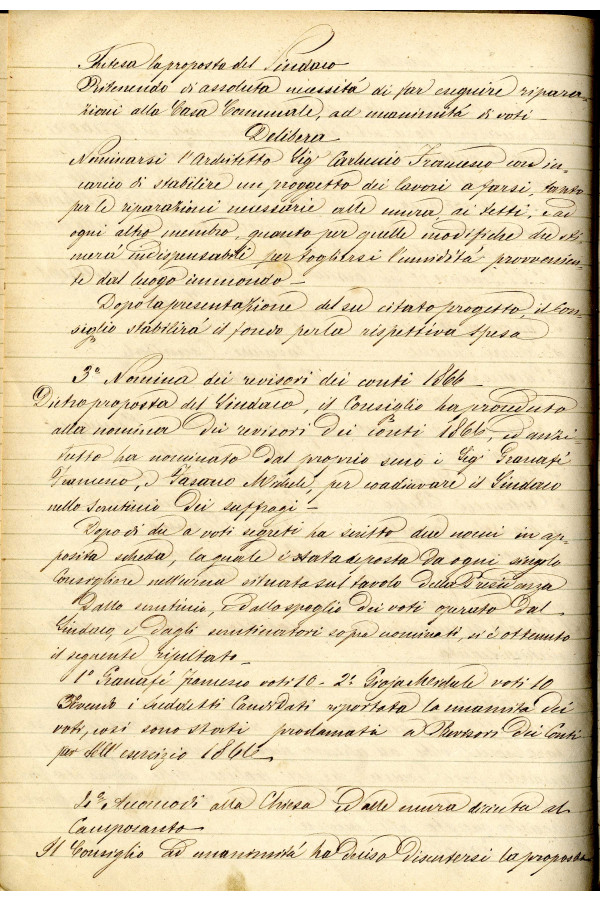 Intesa la proposta del Sindaco
Ritenendo di assoluta necessità di far eseguire ripara-
zioni alla Casa Comunale, ad unanimità di voti
Delibera
Nominarsi l'Architetto Sig. Francesco con in-
carico di stabilire un proggetto dei lavori a farsi, tanto
per le riparazioni necessarie alle mura, ai tetti, e ad
ogni altro membro, quanto per quelle modifiche che sti-
merà indispensabili per togliersi l'umidità provvenien-
te dal luogo immondo—
Dopo la presentazione del su citato progetto, il Con-
siglio stabilirà il fondo per la rispettiva spesa
3° Nomina dei revisori dei conti 1866
Dietro proposta del Sindaco, il Consiglio ha proceduto
alla nomina dei revisori dei Conti 1866, ed anzi-
tutto ha nominato dal proprio seno i Sig. Granafé
Francesco, e Fasano Michele, per coadiuvare il Sindaco
nello scrutinio dei suffragi—
Dopo di che a voti segreti ha scritto due nomi in ap-
posita scheda, la quale è stata deposta da ogni singolo
Consigliere nell'urna situata sul tavolo della Presidenza
Dallo scrutinio, e dallo spoglio dei voti operato dal
Sindaco, e dagli scrutinatori sopra nominati, si è ottenuto
il seguente risultato—
1° Granafé Francesco voti 10 - 2° Gioja voti 10
Avendo i suddetti Candidati riportata la unanimità dei
voti, così sono stati proclamati a Revisori dei Conti
per esercizio 1866
4° Accomodi alla Chiesa ed alle mura diruta al
Camposanto
Il Consiglio ad unanimità ha deciso discutersi la proposta